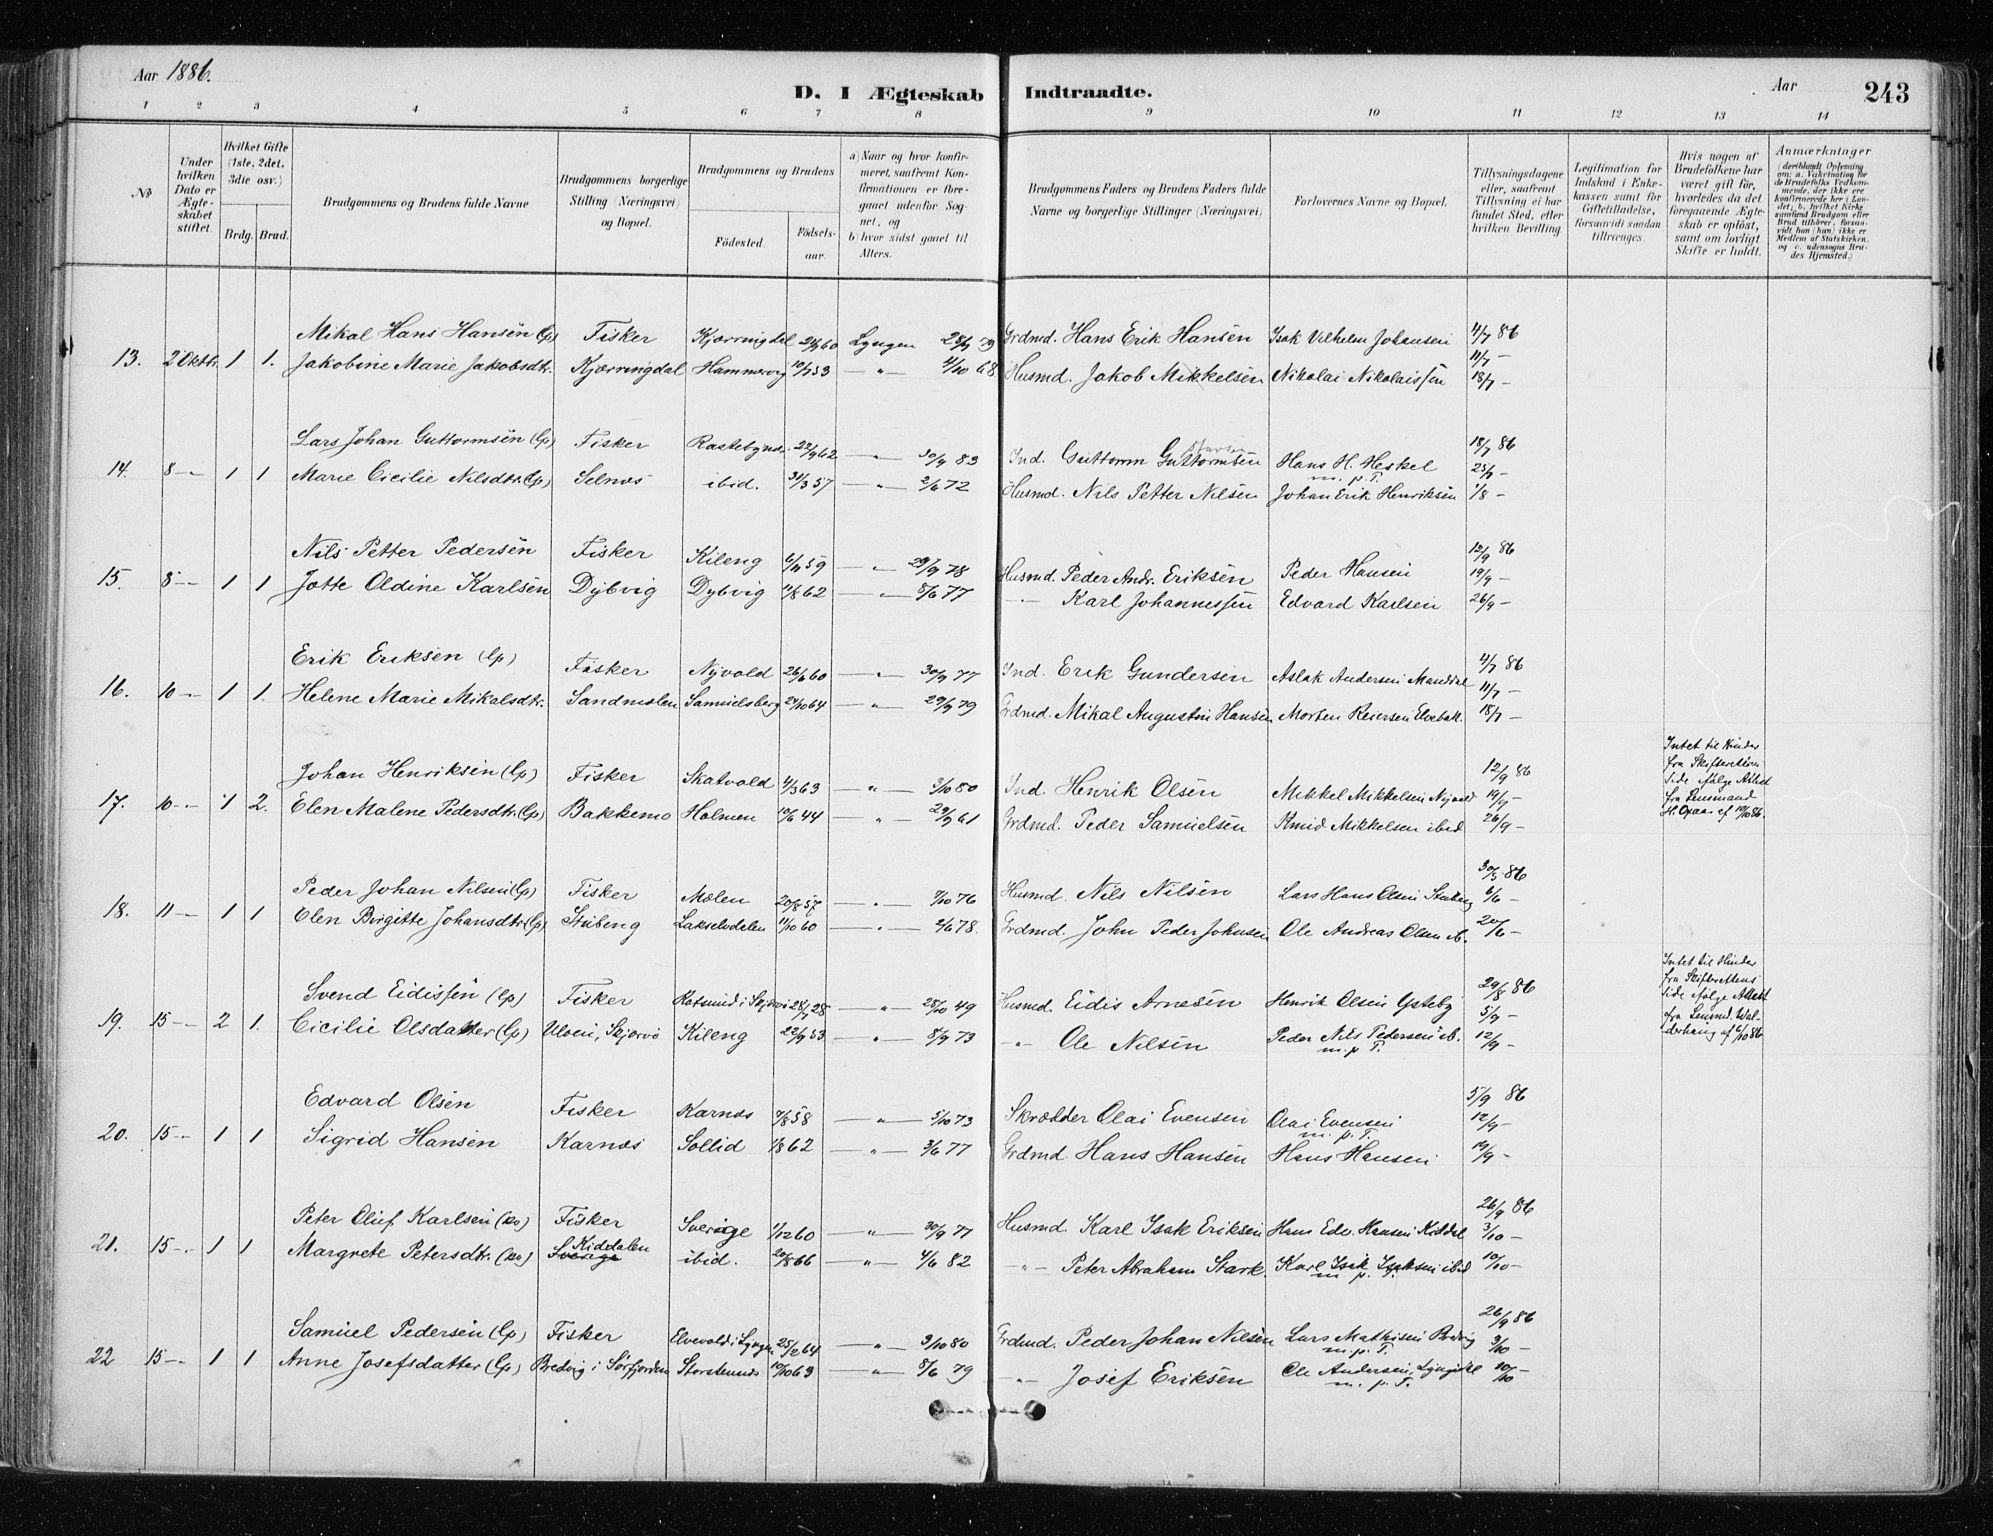 Aar 1886.
D. I Ægteskab Indtraadte.
Aar
243
1 2 3 4 5 6 7 8 9 10 11 12 13 14
No
Under hvilken Dato er Ægteskabet stiftet.
Hvilket Gifte (1ste, 2det, 3die osv.)
Brdg. Brud.
Brudgommens og Brudens fulde Navne
Brudgommens borgerlige Stilling (Næringsvei) og Bopæl.
Brudgommens og Brudens
Födested.
Födselsaar.
a) Naar og hvor konfirmeret, saafremt Konfirmationen er foregaaet udenfor Sognet, og
b) hvor sidst gaaet til Alters.
Brudgommens Faders og Brudens Faders fulde Navne og borgerlige Stillinger (Næringsvei)
Forlovernes Navne og Bopæl.
Tillysningsdagene eller, saafremt Tillysning ei har fundet Sted, efter hvilken Bevilling.
Legitimation for Indskud i Enkekassen samt for Giftetilladelse, forsaavidt saadan tiltrænges.
Hvis nogen af Brudefolkene har været gift för, hvorledes da det foregaaende Ægteskab er oplöst, samt om lovligt Skifte er holdt.
Anmærkninger
Mikal Hans Hansen (Lp) Fisker Kjærringdal 60 Lyngen 79 Grdmd. Hans Erik Hansen Isak Vilhelm Johansen 4/7 86
13. 2 Oktbr. 1 1. Jakobine Marie Jakobsdtr. Kjærringdal Hammervig 53 — " — 4/10 68 Husmd. Jakob Mikkelsen Nikolai Nikolaissen 11/7 —
18/7 —
Lars Johan Guttormsen (Lp) Fisker Rastebynes 22/9 62 — " — 30/9 83 Ind. Guttorm Guttormsen Hans H. Heskel 18/7 86
m. p. T. 25/7 —
14. 8 — 1 1 Marie Cicilie Nilsdtr. (Lp) Selnes ibid. 31/3 57 — " — 2/6 72 Husmd. Nils Petter Nilsen Johan Erik Henriksen 1/8 —
Nils Petter Pedersen Fisker Kileng 59 — " — 29/9 78 Husmd. Peder Andr. Eriksen Peder Hansen 12/9 86
19/9 —
15. 8 — 1 1 Jotte Oldine Karlsen Dybvig Dybvig 62 — " — 8/6 77 — " — Karl Johannessen Edvard Karlsen 26/9 —
Erik Eriksen (Lp) Fisker Nyvold 60 — " — 30/9 77 Ind. Erik Gundersen Aslak Andersen Manddal 4/7 86
11/7 —
16. 10 — 1 1. Helene Marie Mikalsdtr. Sandmelen Samuelsberg 64 — " — 29/9 79 Grdmd. Mikal Augustin Hansen Morten Reiersen Elvebak. 18/7 —
Johan Henriksen (Lp) Fisker Skatvold 4/3 63 — " — 3/10 80 Ind. Henrik Olsen Mikkel Mikkelsen Nyvold 12/9 86
19/9 —
17. 10 — 1 2. Elen Malene Pedersdtr. (Lp) Bakkemo Holmen 10/6 44 — " — 29/9 61 Grdmd. Peder Samuelsen Knud Mikkelsen ibid 26/9 —
Intet til Hinder
fra Skifterettens
Side ifølge Attest
fra Lensmand
af 19/10 86.
Peder Johan Nilsen (Lp) Fisker Mælen 20/8 57 — " — 7/10 76 Husmd. Nils Nilsen Lars Hans Olsen Stubeng 30/5 86
6/6 —
18. 11 — 1 1 Elen Birgitte Johansdtr. (Lp) Stubeng Lakselvdalen 11/10 60 — " — 2/6 78. Grdmd. John Peder Johnsen Ole Andreas Olsen ib. 20/6 —
Svend Eidissen (Lp) Fisker Skjervø 28/7 28 — " — 28/10 49 Husmd. Eidis Arnesen Henrik Olsen Ysteby 29/8 86
5/9 —
19. 15 — 2 1. Cicilie Olsdatter (Lp) Uløen, Skjervø Kileng 22/9 53 — " — 8/9 73 — " — Ole Nilsen Peder Nils Pedersen ib. 12/9 —
m. p. T.
Intet til Hinder
fra Skifterettens
Side ifølge Attest
fra Lensmd. Walderhaug
af 6/10 86
Edvard Olsen Fisker Karnes 7/8 58 — " — 5/10 73 Skrædder Olai Evensen Olai Evensen 5/9 86
m. p. T. 12/9 —
20. 15 — 1 1 Sigrid Hansen Karnes Sollid 1/8 62 — " — 3/6 77 Grdmd. Hans Hansen Hans Hansen 19/9 —
Peter Oluf Karlsen (no) Fisker Sverige 1/12 60 — " — 30/9 77 Husmd. Karl Isak Eriksen Hans Edv. Hansen Kiddal 26/9 86
3/10 —
Kiddalen
21. 15 — 1 1 Margrete Petersdtr. (no) Sverige ibid. 20/8 66 — " — 4/6 82 — " — Peter Abraham Stark. Karl Isak Isaksen ibid 10/10 —
m. p. T.
Samuel Pedersen (Lp) Fisker Elvevold i Lyngen 25/2 64 — " — 3/10 80 Grdmd. Peder Johan Nilsen Lars Mathisen Bredvig 26/9 86
m. p. T. 3/10 —
22 15 — 1 1 Anne Josefsdatter (Lp) Bredvig i Sørfjorden Storstennes 10/10 63 — " — 8/6 79 — " — Josef Eriksen Ole Andersen, 10/10 —
m. p. T.